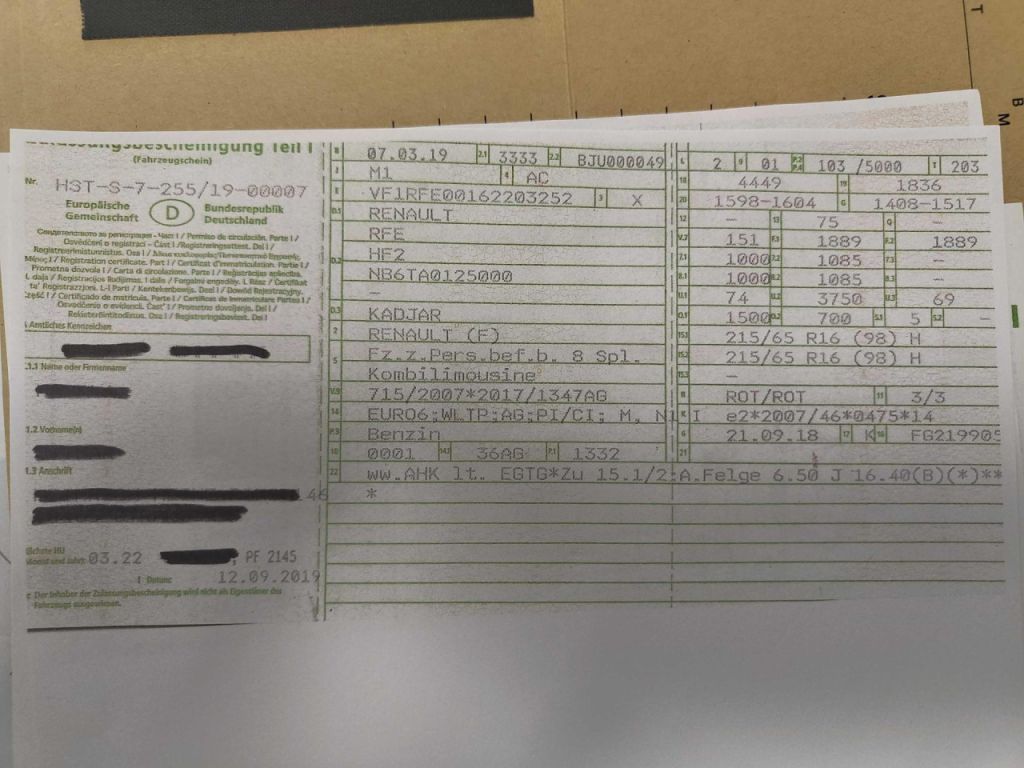 Zulassungsbescheinigung Teil I
(Fahrzeugschein)
Nr. HST-S-7-255/19-00007
Europäische Gemeinschaft D Bundesrepublik Deutschland
Свидетелство за регистрация - Част I / Permiso de circulación. Parte I /
Osvědčení o registraci - Část I / Registreringsattest. Del I /
Registreerimistunnistus. Osa I /
/ Registration certificate. Part I / Certificat d'immatriculation. Partie I /
Prometna dozvola I / Carta di circolazione. Parte I / Reģistrācijas apliecība.
I. daļa / Registracijos liudijimas. I dalis / Forgalmi engedély. I. Rész / Ċertifikat
ta' Reġistrazzjoni. L-I Parti / Kentekenbewijs. Deel I / Dowód Rejestracyjny.
Część I / Certificado de matrícula. Parte I / Certificat de înmatriculare. Partea I /
Osvedčenie o evidencii. Časť I / Prometno dovoljenje. Del I /
Rekisteröintitodistus. Osa I / Registreringsbeviset. Del I
Amtliches Kennzeichen
C.1.1 Name oder Firmenname
1.2 Vorname(n)
1.3 Anschrift
46
Nächste HU
Monat und Jahr: 03.22 , PF 2145
I Datum: 12.09.2019
c Der Inhaber der Zulassungsbescheinigung wird nicht als Eigentümer des
Fahrzeugs ausgewiesen.
B 07.03.19 2.1 3333 2.2 BJU000049
J M1 4 AC
E VF1RFE00162203252 3 X
D.1 RENAULT
RFE
D.2 HF2
NB6TA0125000
–
D.3 KADJAR
2 RENAULT (F)
5 Fz.z.Pers.bef.b. 8 Spl.
Kombilimousine
V.9 715/2007*2017/1347AG
14 EURO6;WLTP;AG;PI/CI; M, N1 I
P.3 Benzin
10 0001 14.1 36AG P.1 1332
22 ww.AHK lt. EGTG*Zu 15.1/2:A.Felge 6.50 J 16.40(B)(*)**
*
L 2 9 01 P.2 P.4 103 /5000 T 203
18 4449 19 1836
20 1598-1604 G 1408-1517
12 – 13 75 Q –
V.7 151 F.1 1889 F.2 1889
7.1 1000 7.2 1085 7.3 –
8.1 1000 8.2 1085 8.3 –
U.1 74 U.2 3750 U.3 69
O.1 1500 O.2 700 S.1 5 S.2 –
15.1 215/65 R16 (98) H
15.2 215/65 R16 (98) H
15.3 –
R ROT/ROT 11 3/3
K e2*2007/46*0475*14
6 21.09.18 17 K 16 FG219905
21